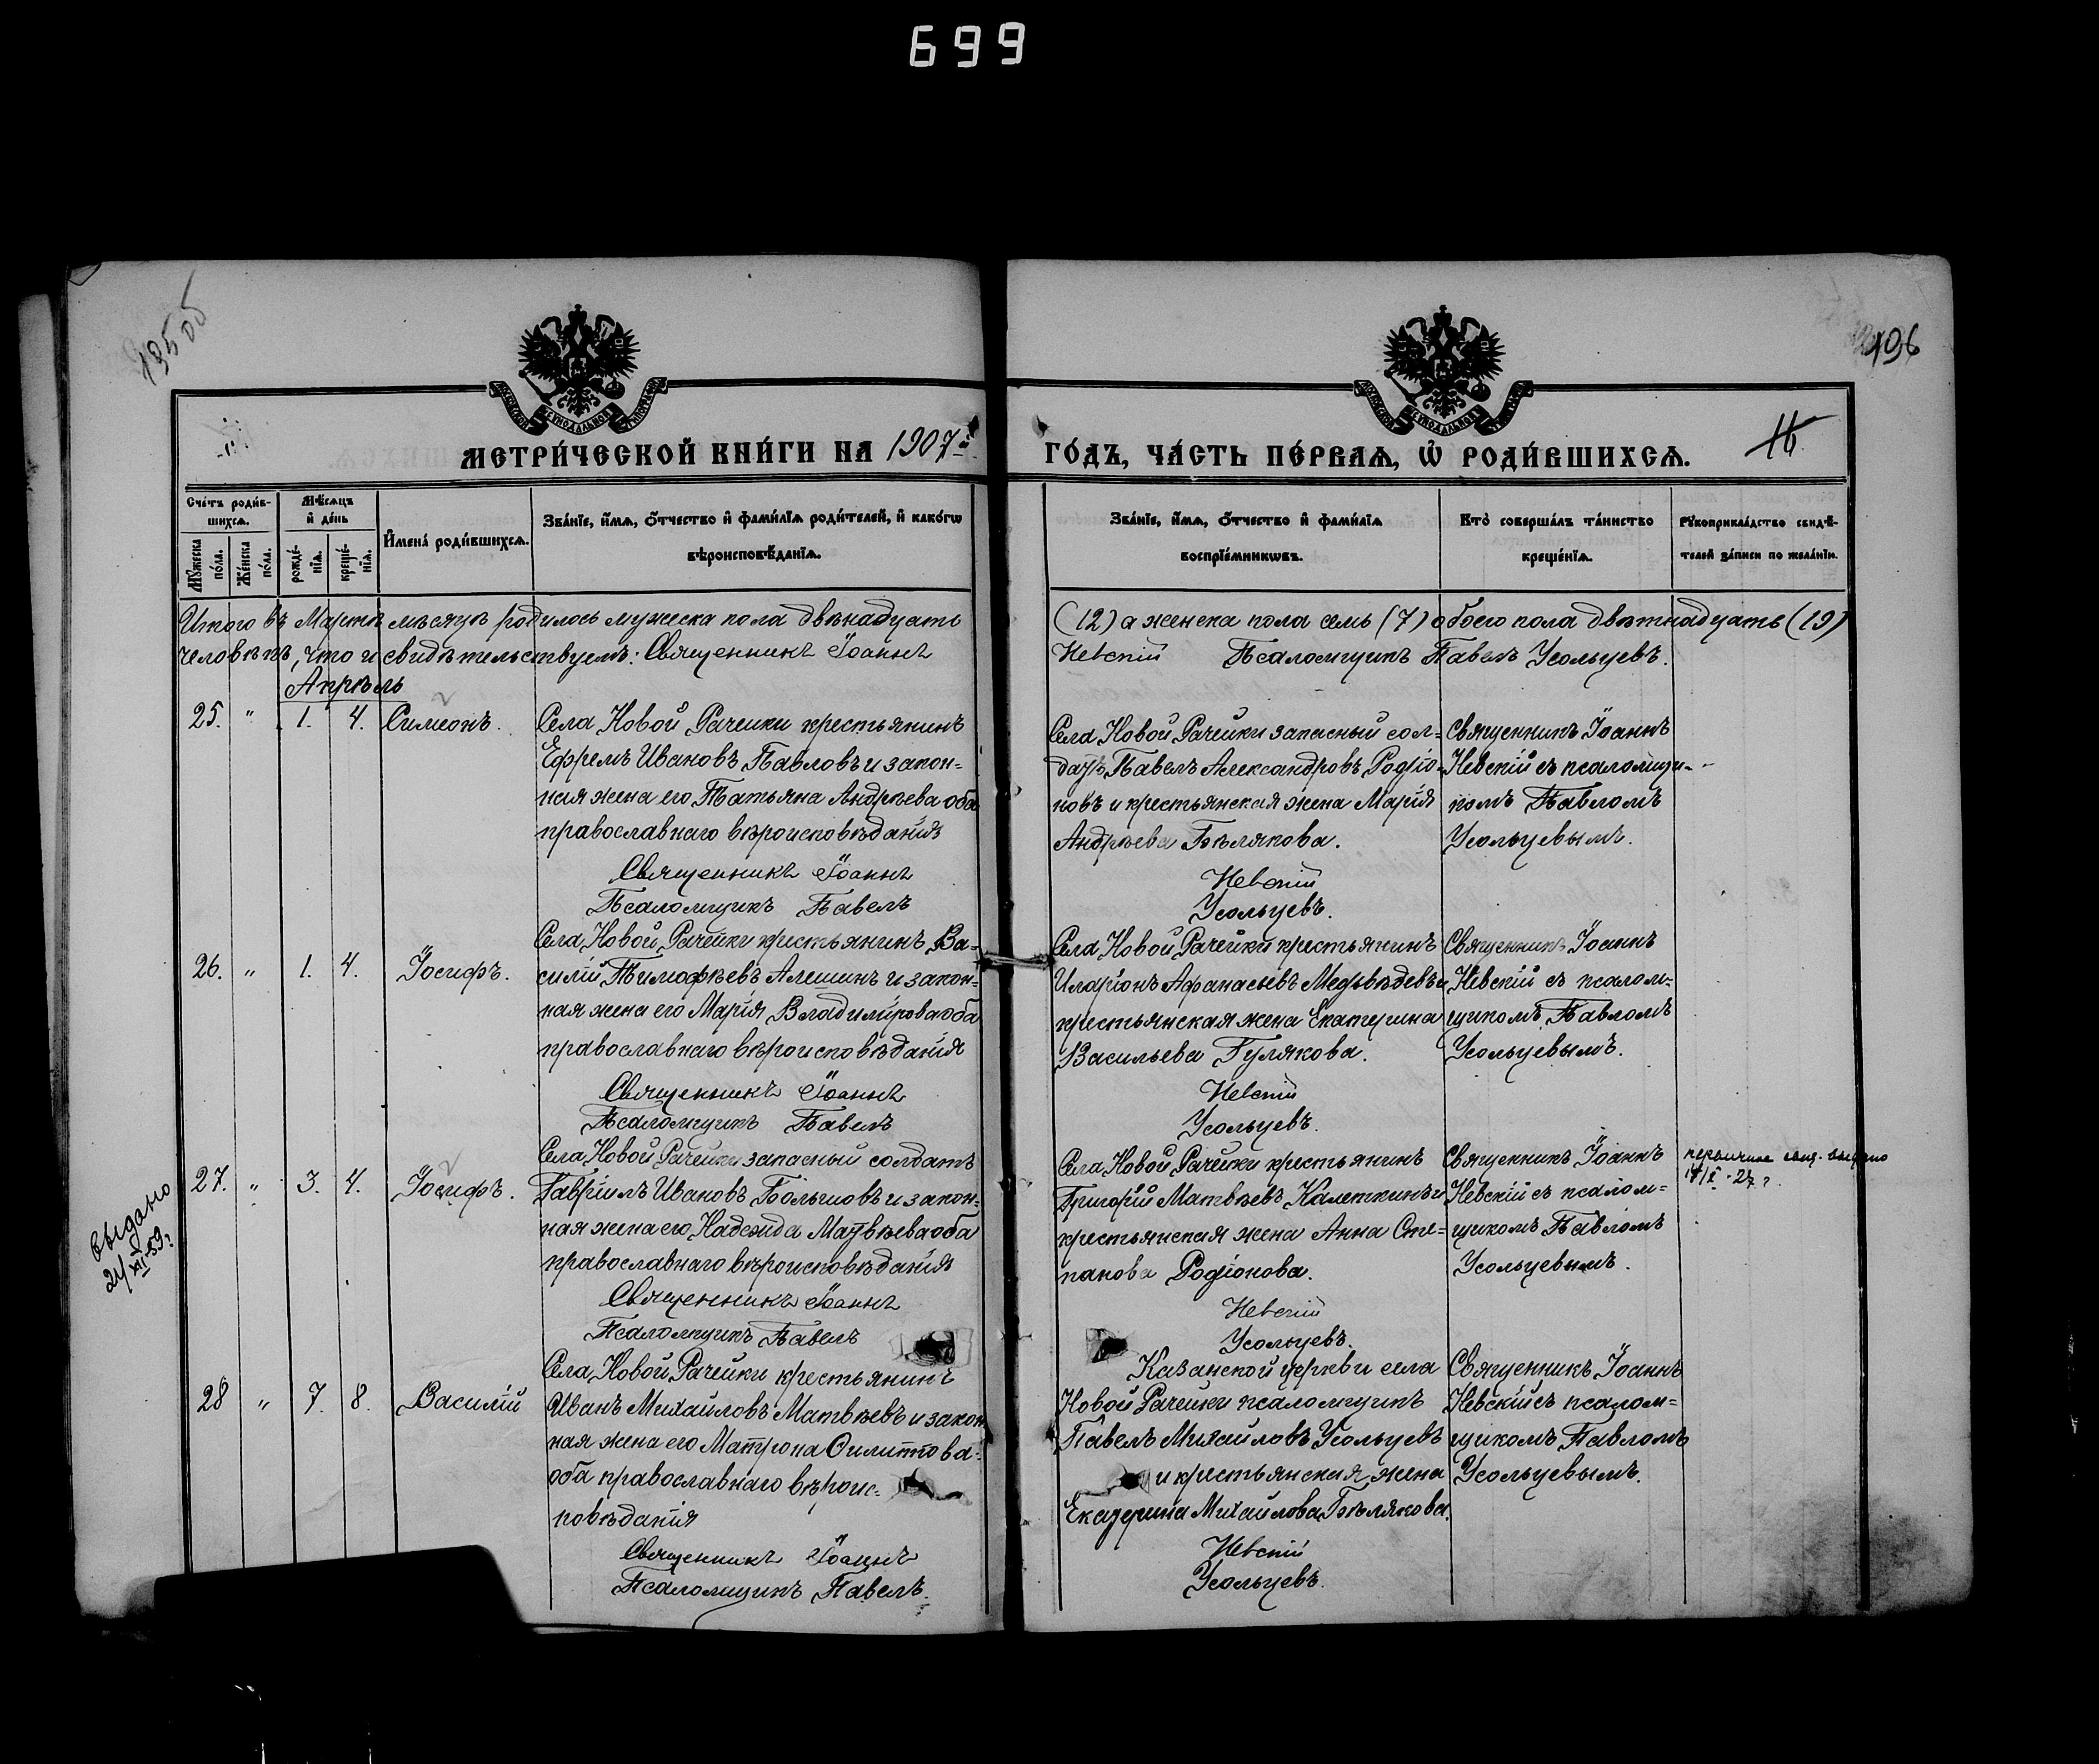 699
195 об
196
МЕТРИ́ЧЕСКОЙ КНИ́ГИ НА 1907й
ГО́ДЪ, ЧА́СТЬ ПЕ́РВАѦ, Ѡ҆ РОДИ́ВШИХСѦ.
16
Сче́тъ роди́в-
шихсѧ.
Мѣ́сѧцъ
и҆ де́нь
Мꙋ́жеска
по́ла.
Же́нска
по́ла.
рожде́-
нїѧ.
креще́-
нїѧ.
И҆мена̀ роди́вшихсѧ.
Зва́нїе, и҆́мѧ, о҆́тчество и҆ фами́лїѧ роди́телей, и҆ како́гѡ
вѣроисповѣ́данїѧ.
Зва́нїе, и҆́мѧ, о҆́тчество и҆ фами́лїѧ
воспрїе́мникѡвъ.
Кто̀ соверша́лъ та́инство
креще́нїѧ.
Рꙋкоприкла́дство свидѣ́-
телей за́писи по жела́нїю.
Итого въ Мартѣ мѣсяцѣ родилось мужеска пола двѣнадцать
(12) а женска пола семь (7) обоего пола девятнадцать (19)
человѣкъ, что и свидѣтельствуемъ: Священникъ Іоаннъ
Невскій Псаломщикъ Павелъ Усольцевъ.
Апрѣль
25. " 1. 4. Симеонъ.
Села Новой Рачейки крестьянинъ
Ефремъ Ивановъ Павловъ и закон=
ная жена его Татьяна Андреева оба
православнаго вѣроисповѣданія
Священникъ Іоаннъ
Псаломщикъ Павелъ
Села Новой Рачейки запасный сол=
датъ Павелъ Александровъ Родіо-
новъ и крестьянская жена Марія
Андреева Бѣлякова.
Невскій
Усольцевъ.
Священникъ Іоаннъ
Невскій съ псаломщи-
комъ Павломъ
Усольцевымъ.
26. " 1. 4. Іосифъ.
Села Новой Рачейки крестьянинъ Ва=
силій Тимофѣевъ Алешинъ и закон=
ная жена его Марія Владимірова оба
православнаго вѣроисповѣданія
Священникъ Іоаннъ
Псаломщикъ Павелъ
Села Новой Рачейки крестьянинъ
Иларіонъ Афанасьевъ Медвѣдевъ и
крестьянская жена Екатерина
Васильева Гулякова.
Невскій
Усольцевъ.
Священникъ Іоаннъ
Невскій съ псалом=
щикомъ Павломъ
Усольцевымъ.
выдано
24/XII-59г
27. " 3. 4. Іосифъ.
Села Новой Рачейки запасный солдатъ
Гавріилъ Ивановъ Большовъ и закон=
ная жена его Надежда Матвѣева оба
православнаго вѣроисповѣданія
Священникъ Іоаннъ
Псаломщикъ Павелъ
Села Новой Рачейки крестьянинъ
Григорій Матвѣевъ Калеткинъ и
крестьянская жена Анна Сте=
панова Родіонова.
Невскій
Усольцевъ.
Священникъ Іоаннъ
Невскій съ псалом=
щикомъ Павломъ
Усольцевымъ.
выдано
28 " 7. 8. Василій
Села Новой Рачейки крестьянинъ
Иванъ Михайловъ Матвѣевъ и закон
ная жена его Матрона Филиппова
оба православнаго вѣроис-
повѣданія
Священникъ Іоаннъ
Псаломщикъ Павелъ.
Казанской церкви села
Новой Рачейки псаломщикъ
Павелъ Михайловъ Усольцевъ
и крестьянская жена
Екатерина Михайлова Бѣлякова.
Невскій
Усольцевъ.
Священникъ Іоаннъ
Невскій съ псалом=
щикомъ Павломъ
Усольцевымъ.